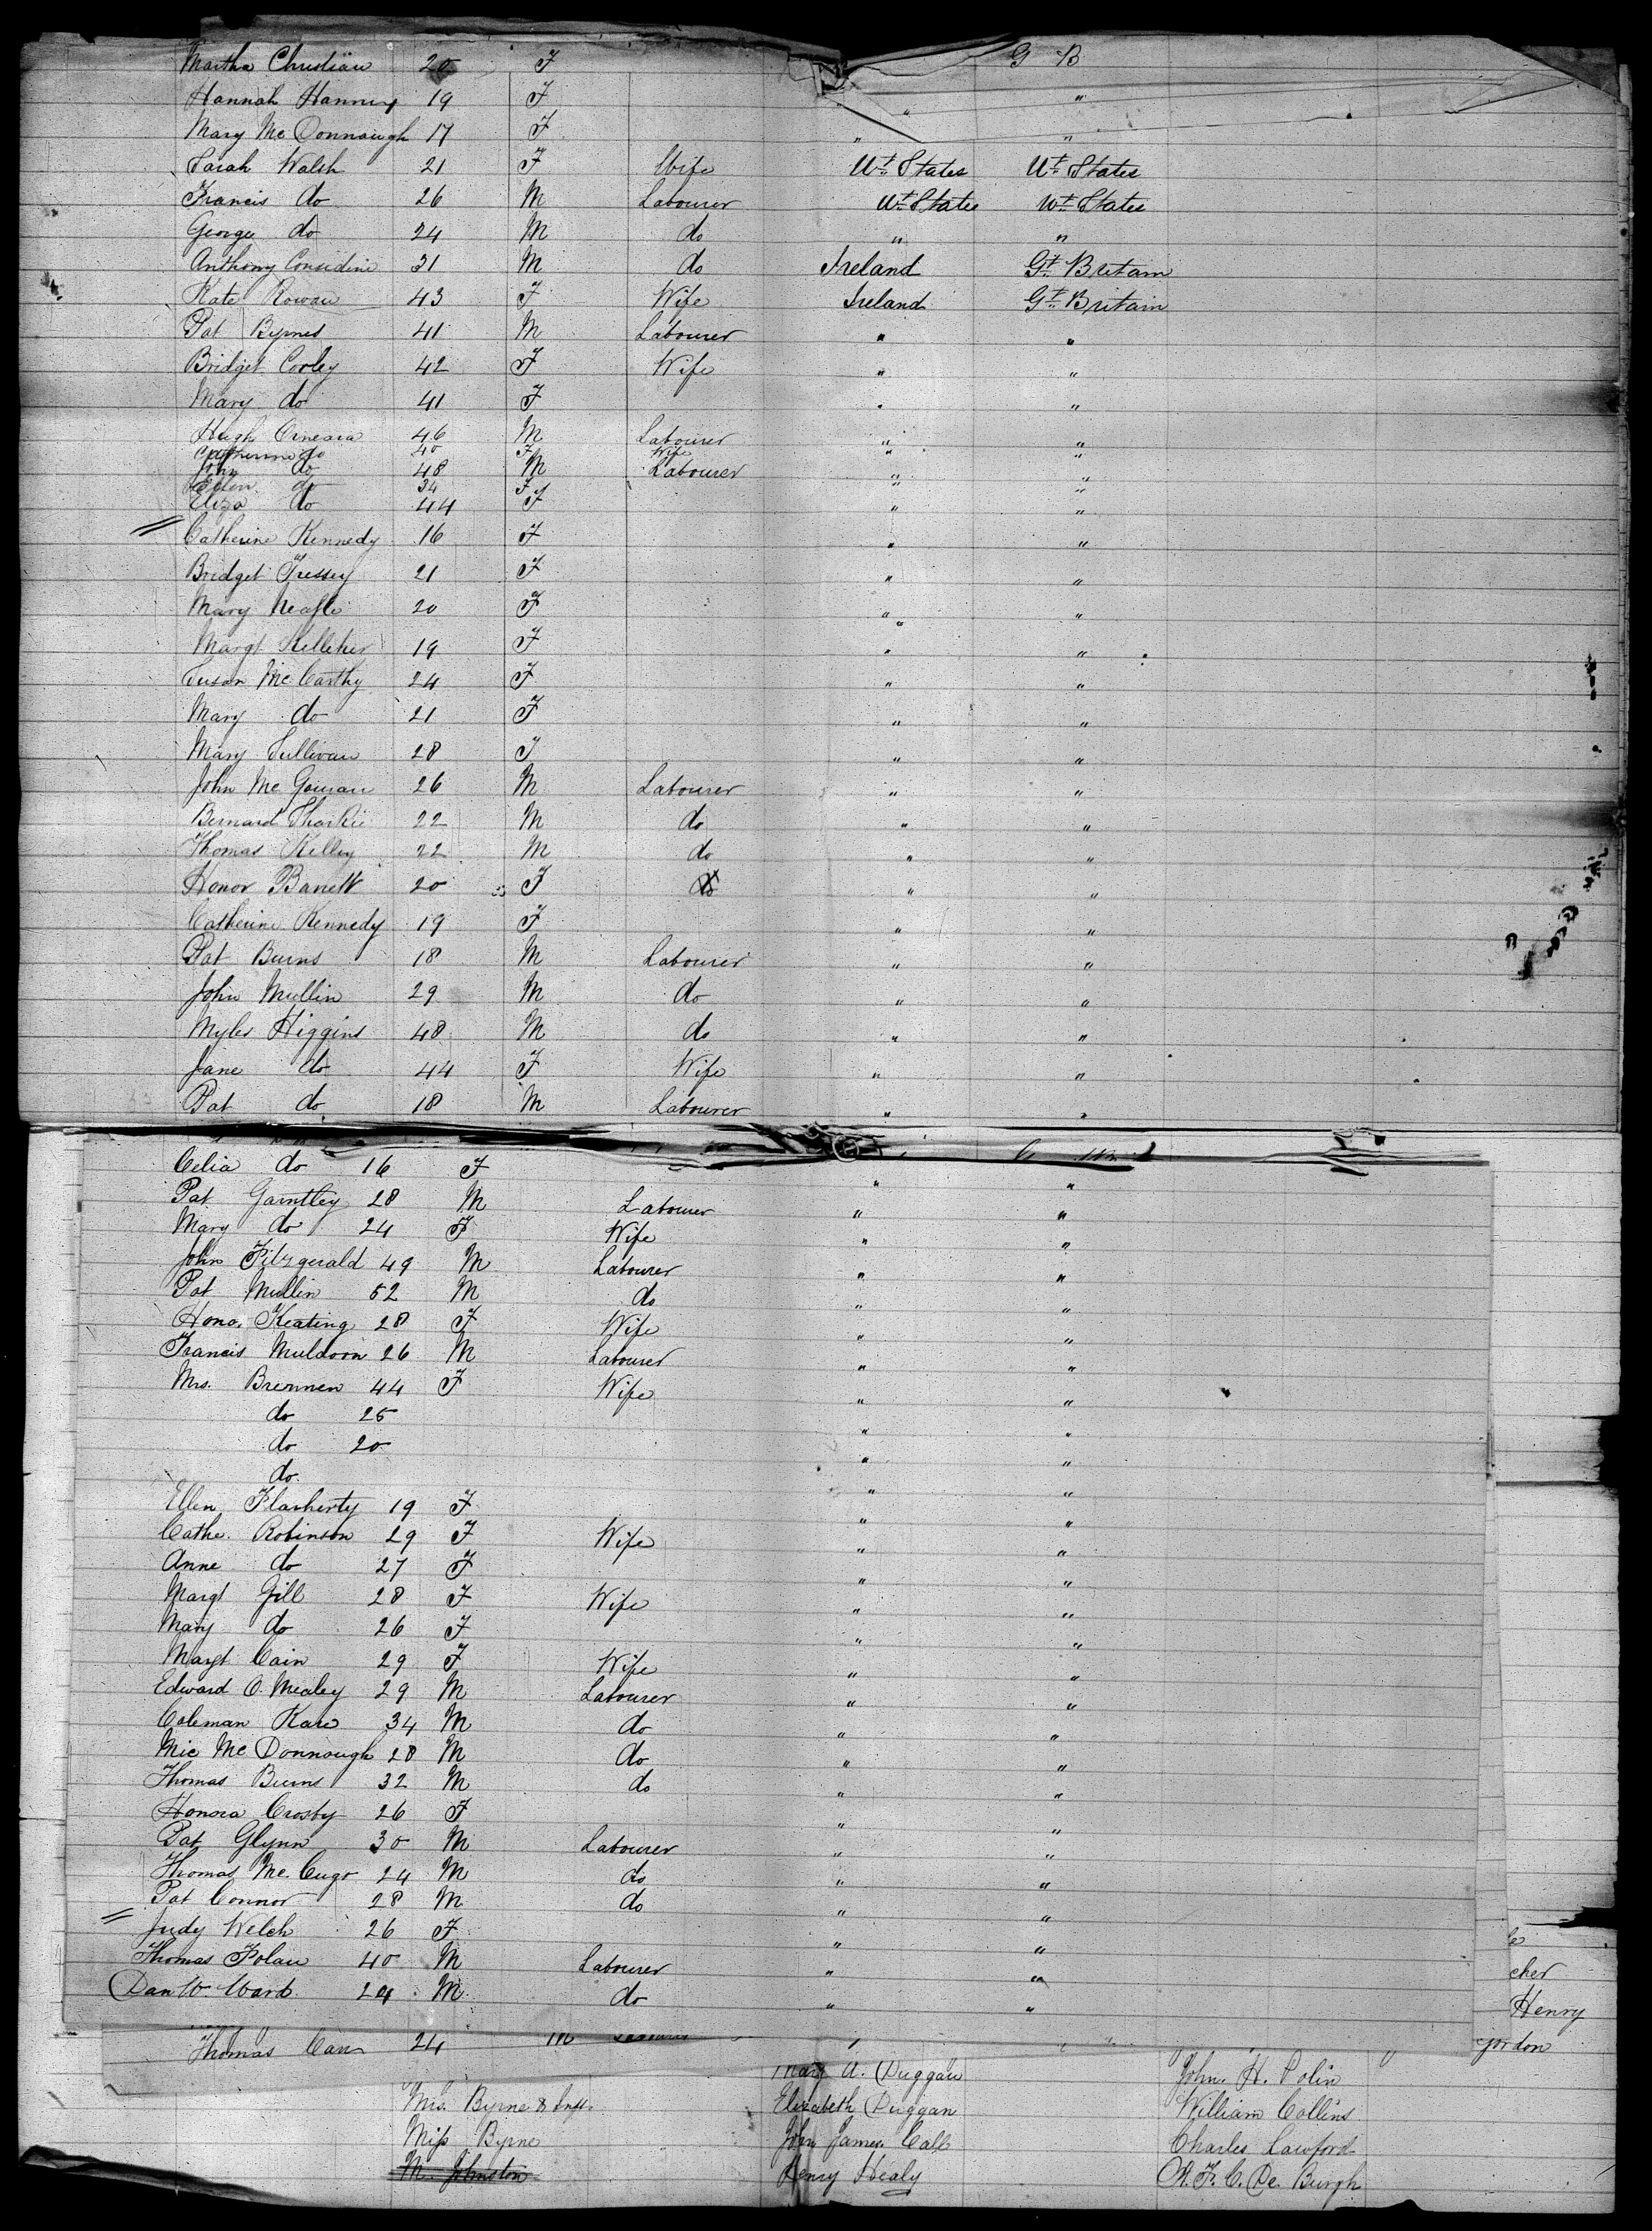 Martha Christian 20 F G B
Hannah Hanning 19 F "
Mary Mc Donnaugh 17 F " "
Sarah Walsh 21 F Wife Ut States Ut States
Francis do 26 M Labourer Ut States Ut States
George do 24 M do " "
Anthony Considine 31 M do Ireland Gt Britain
Kate Rowan 43 F Wife Ireland Gt Britain
Pat Byrnes 41 M Labourer " "
Bridget Cooley 42 F Wife " "
Mary do 41 F " "
Hugh Omeara 46 M Labourer " "
Catherine do 40 F Wife " "
John do 48 M Labourer " "
Ellen do 34 F " "
Eliza do 44 F " "
Catherine Kennedy 16 F " "
Bridget Tressey 21 F " "
Mary Neafle 20 F " "
Margt Kelleher 19 F " "
Susan Mc Carthy 24 F " "
Mary do 21 F " "
Mary Sullivan 28 F " "
John Mc Gowan 26 M Labourer " "
Bernard Sharkie 22 M do " "
Thomas Kelley 22 M do " "
Honor Barrett 20 F do " "
Catherine Kennedy 19 F " "
Pat Burns 18 M Labourer " "
John Mullin 29 M do " "
Myles Higgins 48 M do " "
Jane do 44 F Wife " "
Pat do 18 M Labourer " "
Celia do 16 F " "
Pat Garntley 28 M Labourer " "
Mary do 24 F Wife " "
John Fitzgerald 49 M Labourer " "
Pat Mullin 52 M do " "
Hono. Keating 28 F Wife " "
Francis Muldoon 26 M Labourer " "
Mrs. Brennen 44 F Wife " "
do 25 " "
do 20 " "
do " "
Ellen Flarherty 19 F " "
Cathe. Robinson 29 F Wife " "
Anne do 27 F " "
Margt Gill 28 F Wife " "
Mary do 26 F " "
Margt Cain 29 F Wife " "
Edward O. Mealey 29 M Labourer " "
Coleman Kane 34 M do " "
Mic Mc Donnaugh 28 M do " "
Thomas Burns 32 M do " "
Honora Crosby 26 F " "
Pat Glynn 30 M Labourer " "
Thomas Mc. Cugo 24 M do " "
Pat Connor 28 M do " "
Judy Welch 26 F " "
Thomas Folan 40 M Labourer " "
cher
Dan W. Ward 24 M do " "
Henry
Thomas Carr 24 M Labourer
Gordon
Mary A. Duggan John. H. Polin
Mrs. Byrne & Inft. Elizabeth Duggan William Collins
Miss Byrne John James Call Charles Lawford
M. Johnston Henry Healy R. F. C. De Burgh